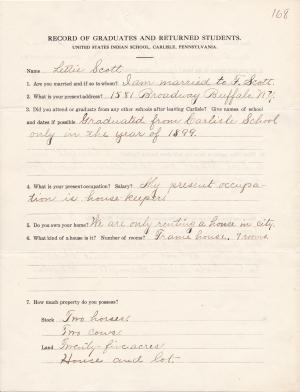 168
RECORD OF GRADUATES AND RETURNED STUDENTS.
UNITED STATES INDIAN SCHOOL, CARLISLE, PENNSYLVANIA.
Name Lillie Scott
1. Are you married and if so to whom? I am married to F. Scott.
2. What is your present address? 1581 Broadway Buffalo N.Y.
3. Did you attend or graduate from any other schools after leaving Carlisle? Give names of school
and dates if possible Graduated from Carlisle School
only in the year of 1899.
4. What is your present occupation? Salary? My present occupa-
tion is house-keeper
5. Do you own your home? We are only renting a house in city.
6. What kind of a house is it? Number of rooms? Frame house, 7 rooms
7. How much property do you possess?
Stock Two horses
Two cows
Land Twenty-five acres
House and lot.